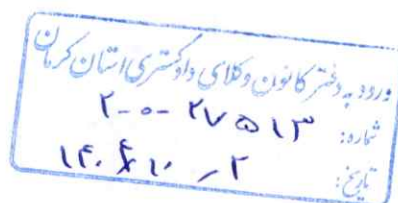 ورود به دفتر کانون وکلای دادگستری استان کرمان
شماره: ۲۰۰-۲۷۵۱۳
تاریخ: